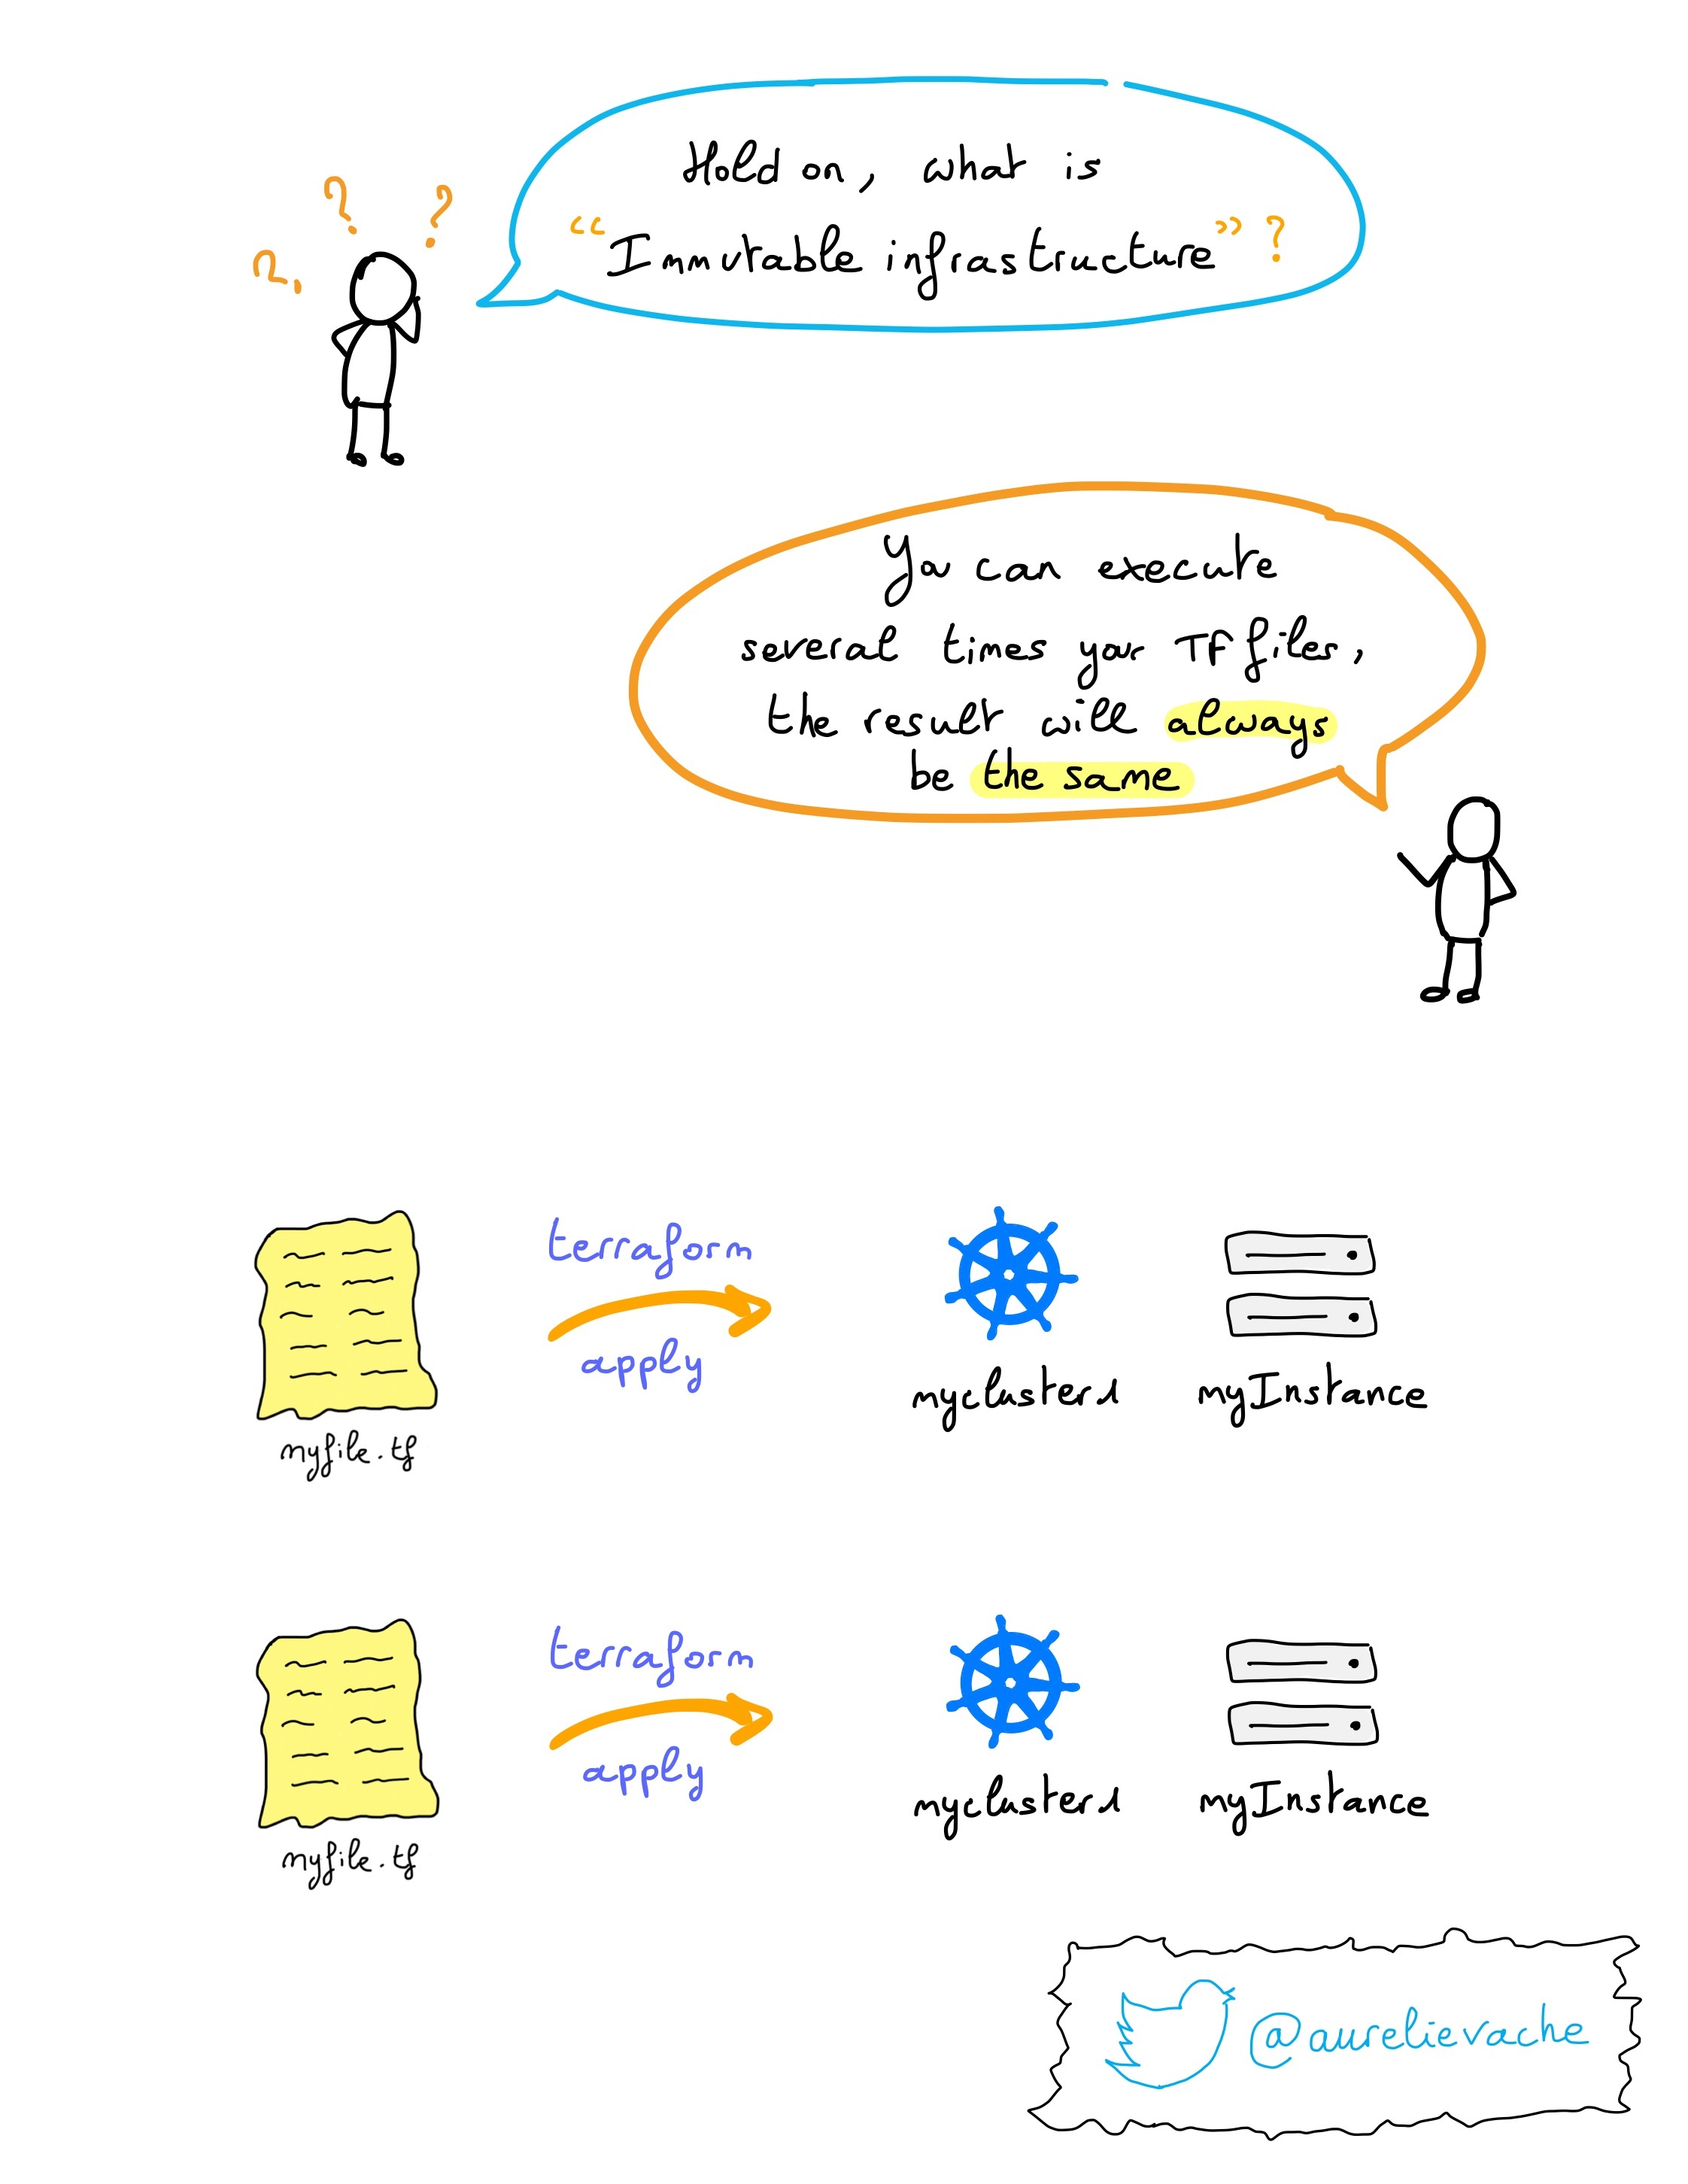 Hold on, what is
“Immutable infrastructure” ?
You can execute
several times your TF files,
the result will always
be the same
terraform
apply
myfile.tf
mycluster1
myInstance
terraform
apply
myfile.tf
mycluster1
myInstance
@aurelievache